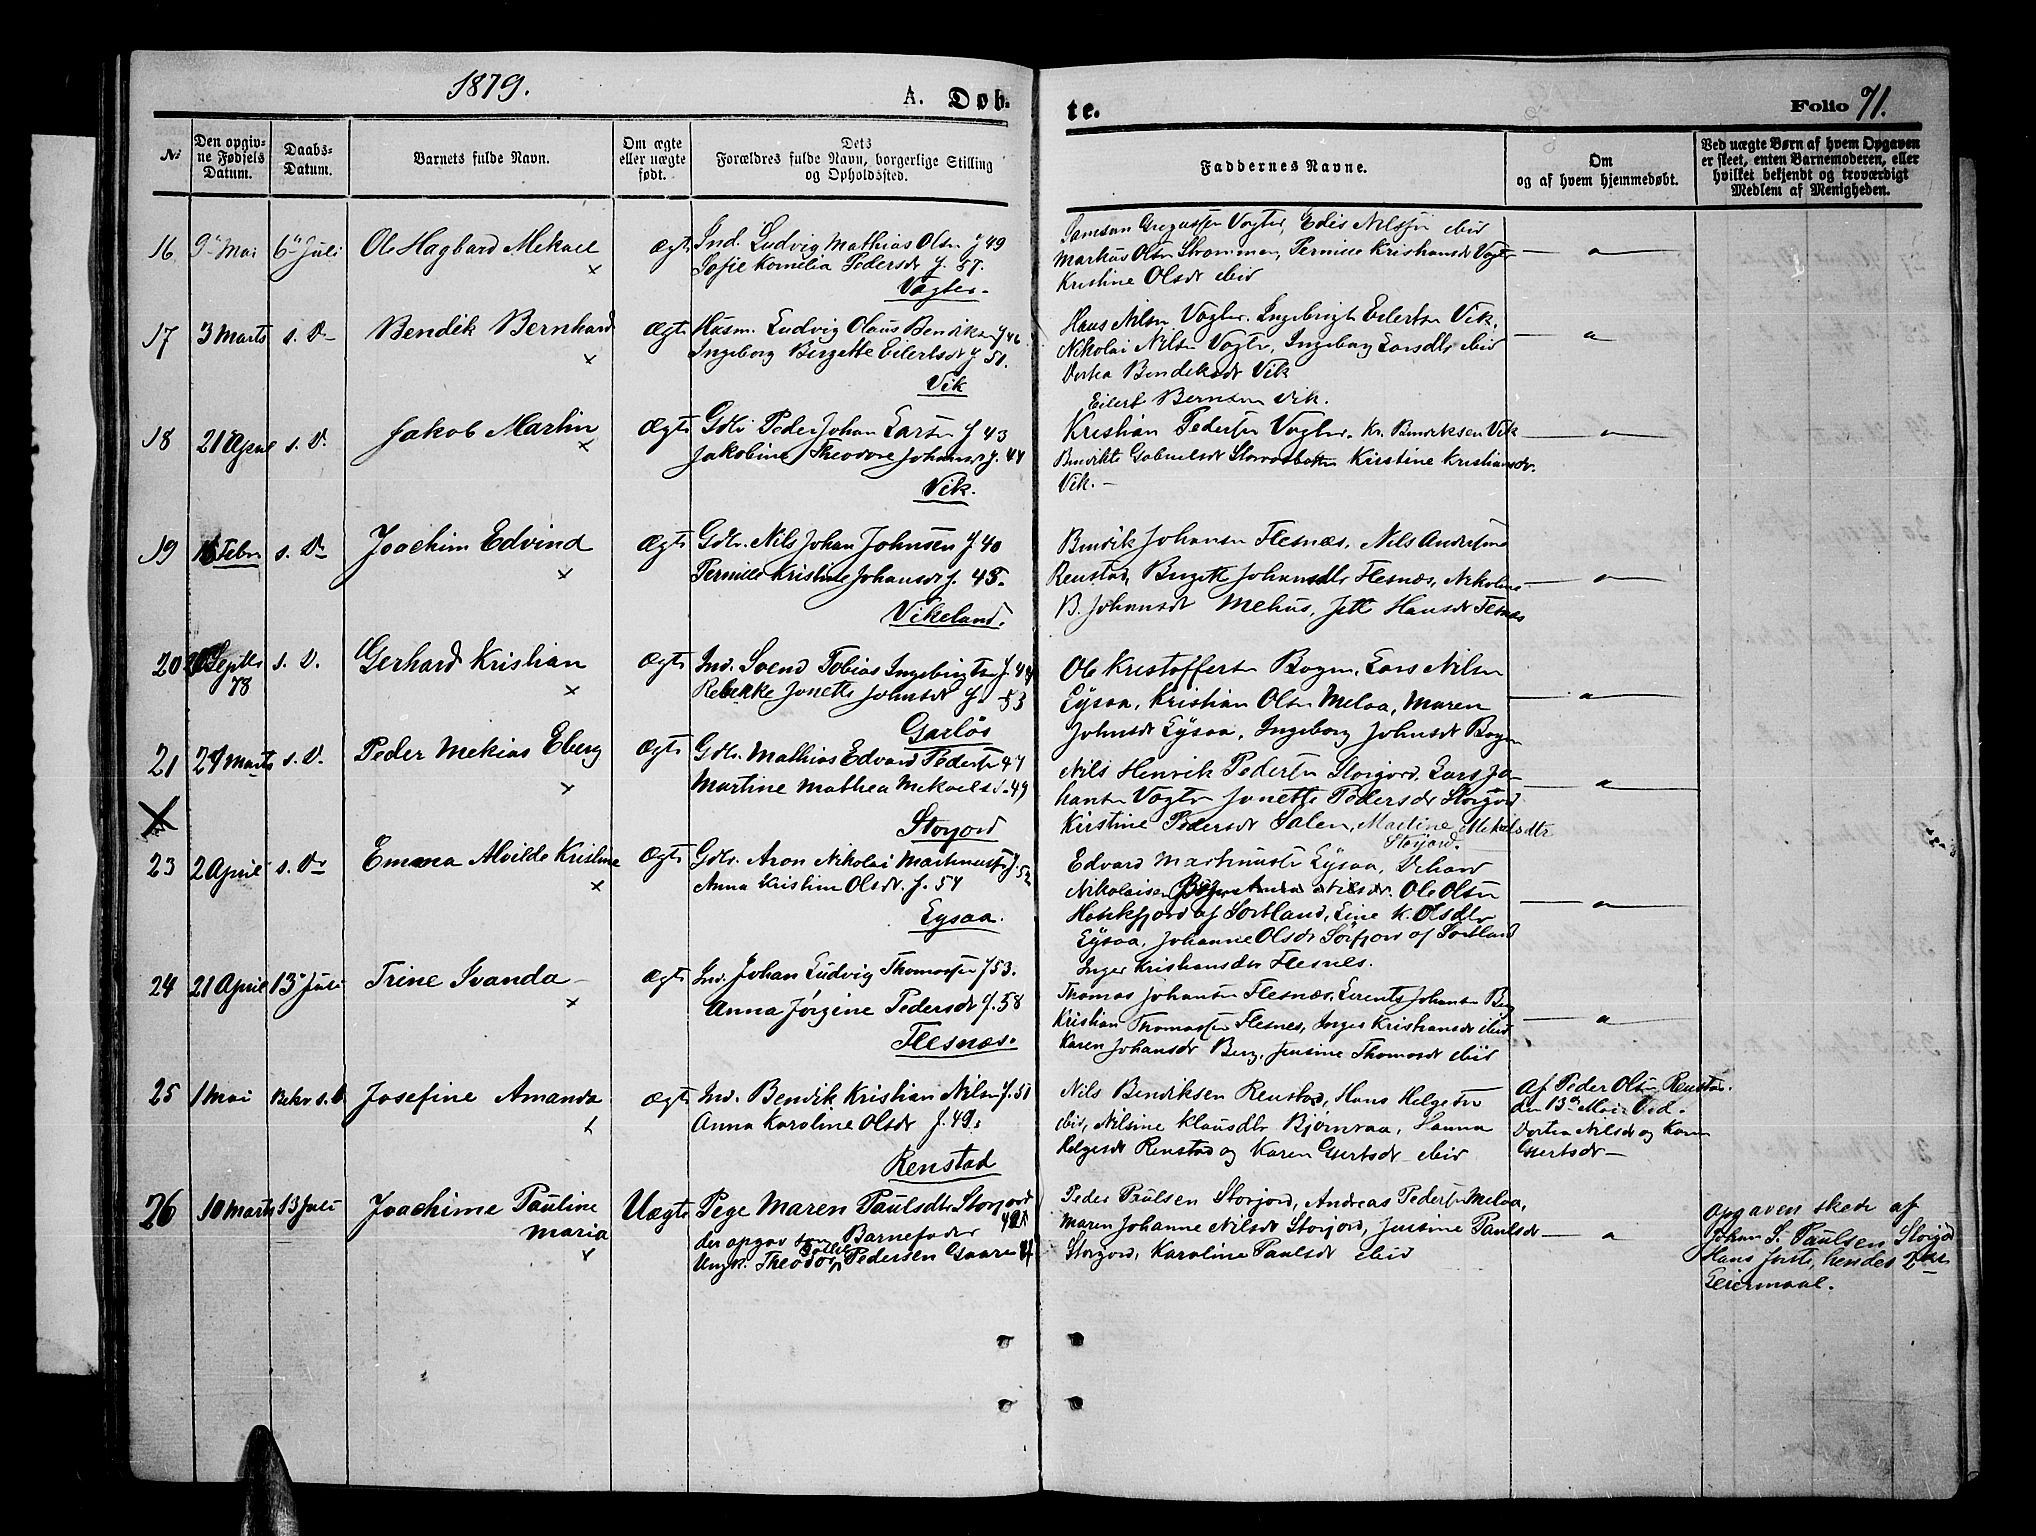 1879.
A. Døb-
te.
Folio 71.
No
Den opgiv-
ne Fødsels
Datum.
Daabs-
Datum.
Barnets fulde Navn.
Om ægte
eller uægte
født.
Dets
Forældres fulde Navn, borgerlige Stilling
og Opholdssted.
Faddernes Navne.
Om
og af hvem hjemmedøbt.
Ved uægte Børn af hvem Opgaven
er skeet, enten Barnemoderen, eller
hvilket bekjendt og troværdigt
Medlem af Menigheden.
16 9de Mai 6te Juli Ole Hagbard Mekael ægte Ind. Ludvig Mathias Olsn f 49
Sofie Kornelia Pedersdr f. 57.
Vagter.
Samson Vogter, Edis Nilssn ibid
Markus Olsn Strømmen, Pernille Kristiansdr Vogter
Kristine Olsdr ibid
17 3 Marts s. D. Bendik Bernhard ægte Husm. Ludvig Olaus Bendiksen f 46
Ingeborg Bergette Eilertsdr f 51.
Vik
Hans Nilsn Vogter. Ingebrigt Eilertsn Vik.
Nikolai Nilsn Vogter, Ingeborg Larsdtr ibid
Dortea Bendiksdr Vik
Eilert Berntsn Vik.
18 21 April s. D. Jakob Martin ægte Gdbr. Peder Johan Larsn f 43
Jakobine Theodore Johansdr f. 44
Vik.
Kristian Pedersn Vogter. Kr. Bendriksen Vik
Bendikte Gabrielsdr Kirstine Kristiansdr.
Vik. -
19 16 Febr s. D. Joachim Edvind ægte Gdbr. Nils Johan Johnsen f 40
Pernille Kristine Johansdr f. 45.
Vikeland.
Bendik Johansn Flesnæs, Nils Andersn
Renstad, Birgitte Johansdtr Flesnæs, Nikoline
B. Johansdr Mehus, Jett Hansdr Flesnæs
20 Septbr s. D. Gerhard Kristian ægte Ind. Svend Tobias Ingebrigtsn f. 44
78
Rebekke Jonette Johnsdr f. 53
Garløs
Ole Kristoffersn Bogen, Lars Nilsn
Eysaa, Kristian Olsn Meloa, Maren
Johnsdr Eysaa, Ingeborg Johnsdr Bogen
21 24 Marts s. D. Peder Mekias Eberg ægte Gdbr. Mathias Edvard Pedersn 47
Martine Mathea Mekaelsd. 49
Storjord
Nils Henrik Pedersn Storjord, Lars Jo-
hansn Vogter Jonette Pedersdr Storjord
Kirstine Pedersdr Salen, Martine Mekelsdtr
Storjord.
23 2 April s. D. Emma Alvilde Kristine ægte Gdbr. Aron Nikolai Martinussn f. 52
Anna Kristine Olsdr. f. 54
Eysaa.
Edvard Martinussn Eysaa, Dehard
Nikolaisen Anna Nilsdr. Ole Olsn
Holkfjord af Sortland, Line K. Olsdtr
Eysaa, Johanne Olsdr Sørfjord af Sortland
Inger Kristiansdr Flesnes.
24 21 April 13de Juli Trine Ivanda ægte Ind. Johan Ludvig Thomassn f 53.
Anna Jørgine Pedersdr f. 58
Flesnæs.
Thomas Johansn Flesnæs, Lorents Johansn Berg
Kristian Thomassn Flesnes, Inger Kristiansdr ibid
Karen Johansdr Berg, Jensine Thomasdr ibid
25 1 Mai Bekr s. D. Josefine Amanda ægte Ind. Bendik Kristian Nilsn f. 51
Anna Karoline Olsdr f. 49.
Renstad
Nils Bendiksen Renstad, Hans Helgesen
ibid, Nilsine Klausdtr Bjørnraa, Hanna
Helgesdr Renstad og Karen Evertsdr ibid
Af Peder Olsn Renstad.
den 13de Mai Ved.
Dortea Nilsdr og Karen
Evertsdr
26 10 Marts 13 Juli Joachime Pauline
Maria
Uægte Pige Maren Paulsdtr Storjord
der opgav som Barnefader
Ungk. Theodor Pedersen Gaaren
Peder Paulsen Storjord, Andreas Pedersn Meloa,
Maren Johanne Nilsdr Storjord, Jensine Paulsdr
Storjord, Karoline Paulsdr ibid
Opgaven skede af
Johan S. Paulsen Storjord
Hans første, hendes 2det
Leiermaal.